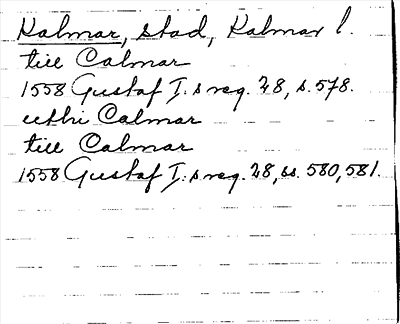 Kalmar, stad, Kalmar l.
till Calmar
1558 Gustaf I:s reg. 28, s. 578.
utthi Calmar
till Calmar
1558 Gustaf I:s reg. 28, ss. 580, 581.